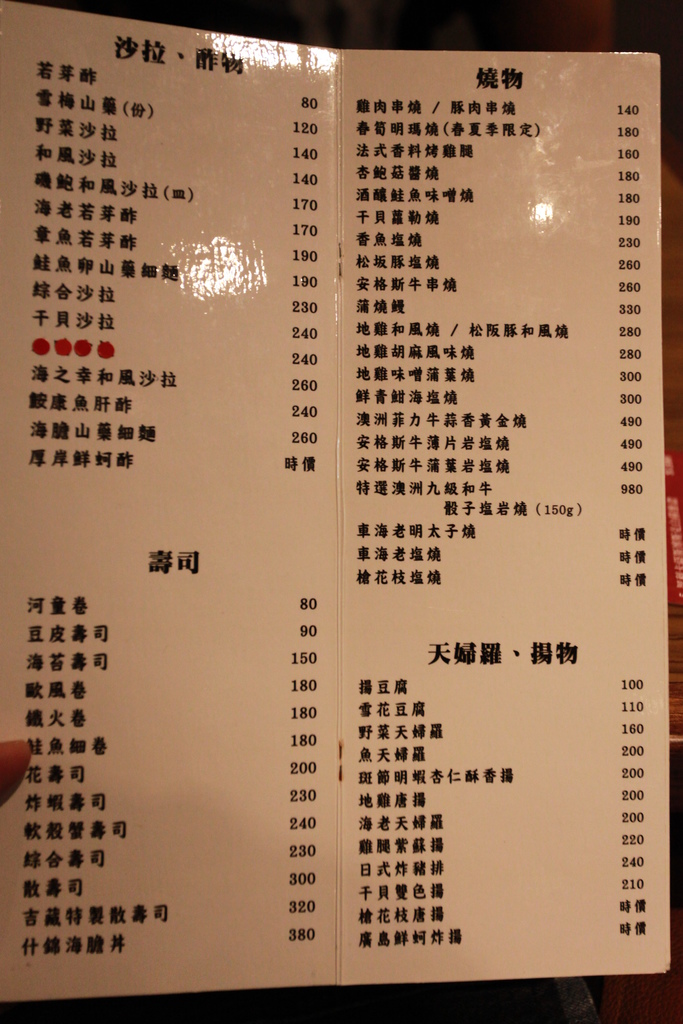 沙拉、酢物
若芽酢 80
雪梅山藥(份) 120
野菜沙拉 140
和風沙拉 140
磯鮑和風沙拉(皿) 170
海老若芽酢 170
章魚若芽酢 190
鮭魚卵山藥細麵 190
綜合沙拉 230
干貝沙拉 240
240
海之幸和風沙拉 260
鮟康魚肝酢 240
海膽山藥細麵 260
厚岸鮮蚵酢 時價
壽司
河童卷 80
豆皮壽司 90
海苔壽司 150
歐風卷 180
鐵火卷 180
鮭魚細卷 180
花壽司 200
炸蝦壽司 230
軟殼蟹壽司 240
綜合壽司 230
散壽司 300
吉藏特製散壽司 320
什錦海膽丼 380
燒物
雞肉串燒 / 豚肉串燒 140
春筍明瑪燒(春夏季限定) 180
法式香料烤雞腿 160
杏鮑菇醬燒 180
酒釀鮭魚味噌燒 180
干貝蘿勒燒 190
香魚塩燒 230
松坂豚塩燒 260
安格斯牛串燒 260
蒲燒鰻 330
地雞和風燒 / 松阪豚和風燒 280
地雞胡麻風味燒 280
地雞味噌蒲葉燒 300
鮮青魽海塩燒 300
澳洲菲力牛蒜香黃金燒 490
安格斯牛薄片岩塩燒 490
安格斯牛蒲葉岩塩燒 490
特選澳洲九級和牛 980
骰子塩岩燒(150g)
車海老明太子燒 時價
車海老塩燒 時價
槍花枝塩燒 時價
天婦羅、揚物
揚豆腐 100
雪花豆腐 110
野菜天婦羅 160
魚天婦羅 200
斑節明蝦杏仁酥香揚 200
地雞唐揚 200
海老天婦羅 200
雞腿紫蘇揚 220
日式炸豬排 240
干貝雙色揚 210
槍花枝唐揚 時價
廣島鮮蚵炸揚 時價